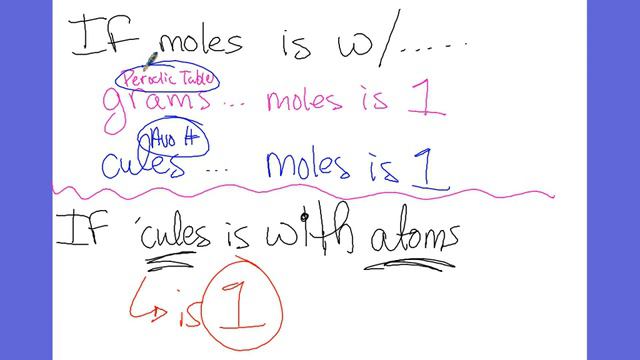 If moles is w/.....
Periodic Table
grams... moles is 1
Avo #
cules... moles is 1
If 'cules is with atoms
is 1